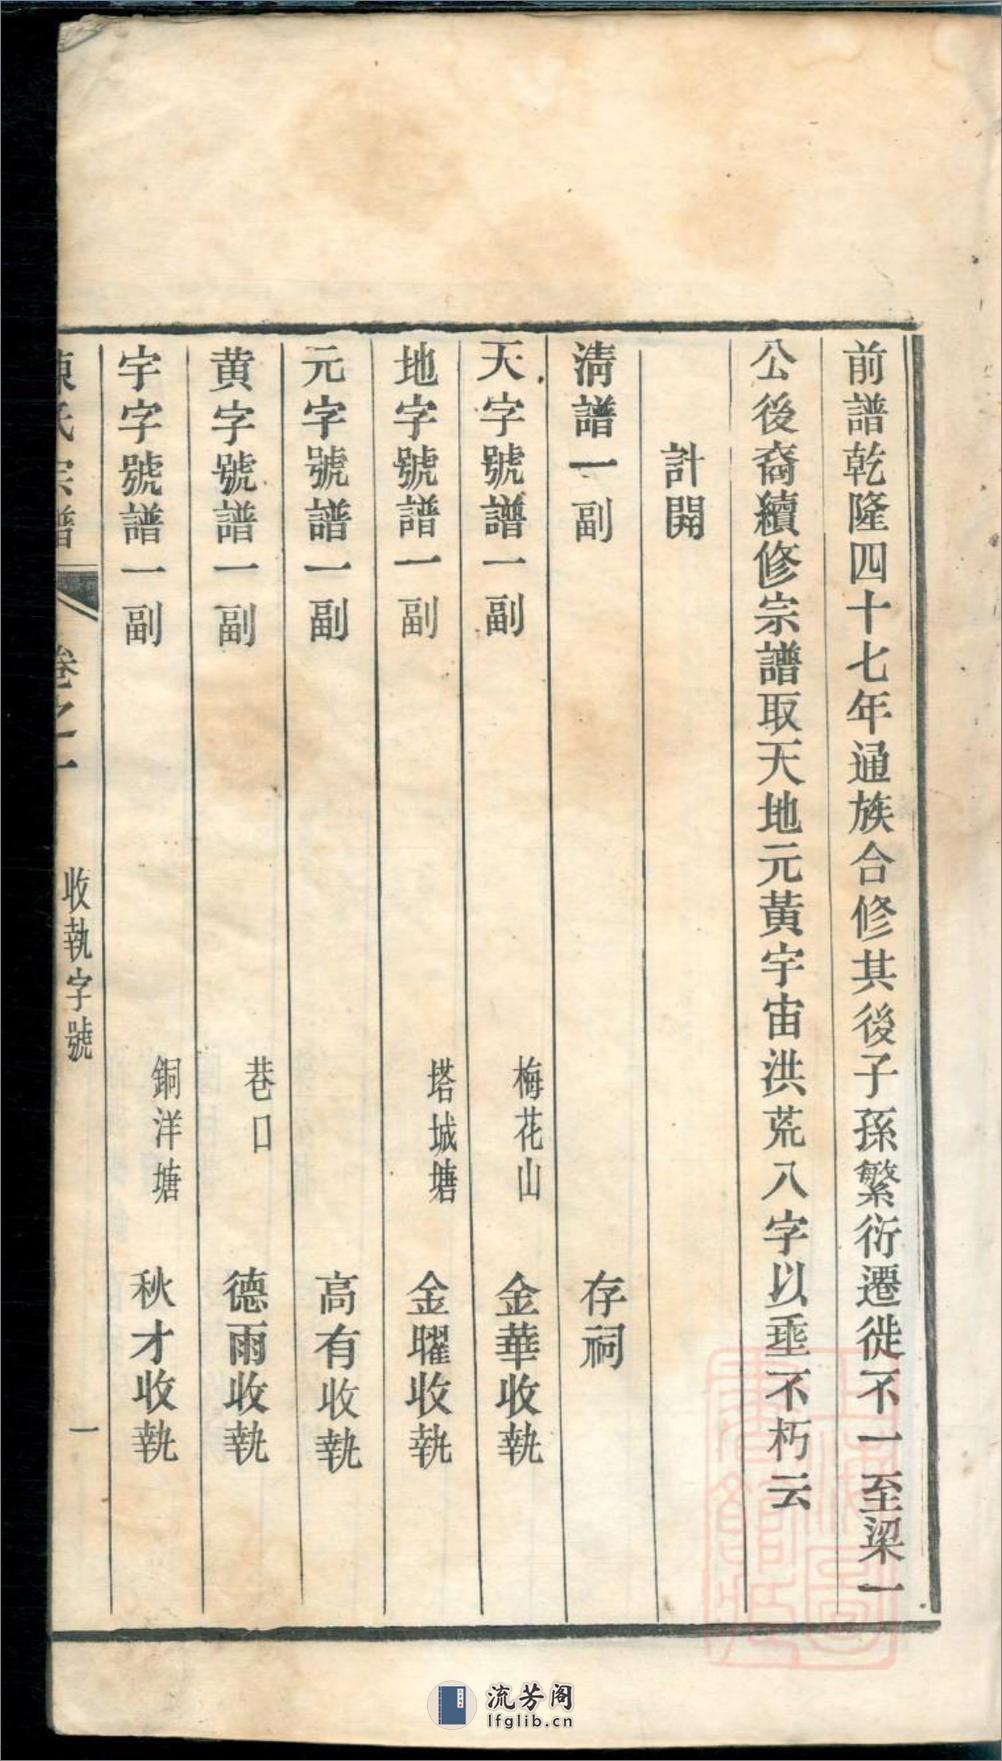 前譜乾隆四十七年通族合修其後子孫繁衍遷徙不一至梁一
公後裔續修宗譜取天地元黃宇宙洪荒八字以垂不朽云
計開
清譜一副 存祠
天字號譜一副 梅花山 金華收執
地字號譜一副 塔城塘 金曜收執
元字號譜一副 高有收執
黃字號譜一副 巷口 德雨收執
宇字號譜一副 銅洋塘 秋才收執
氏宗譜 卷之一 收執字號 一
流芳阁
lfglib.cn